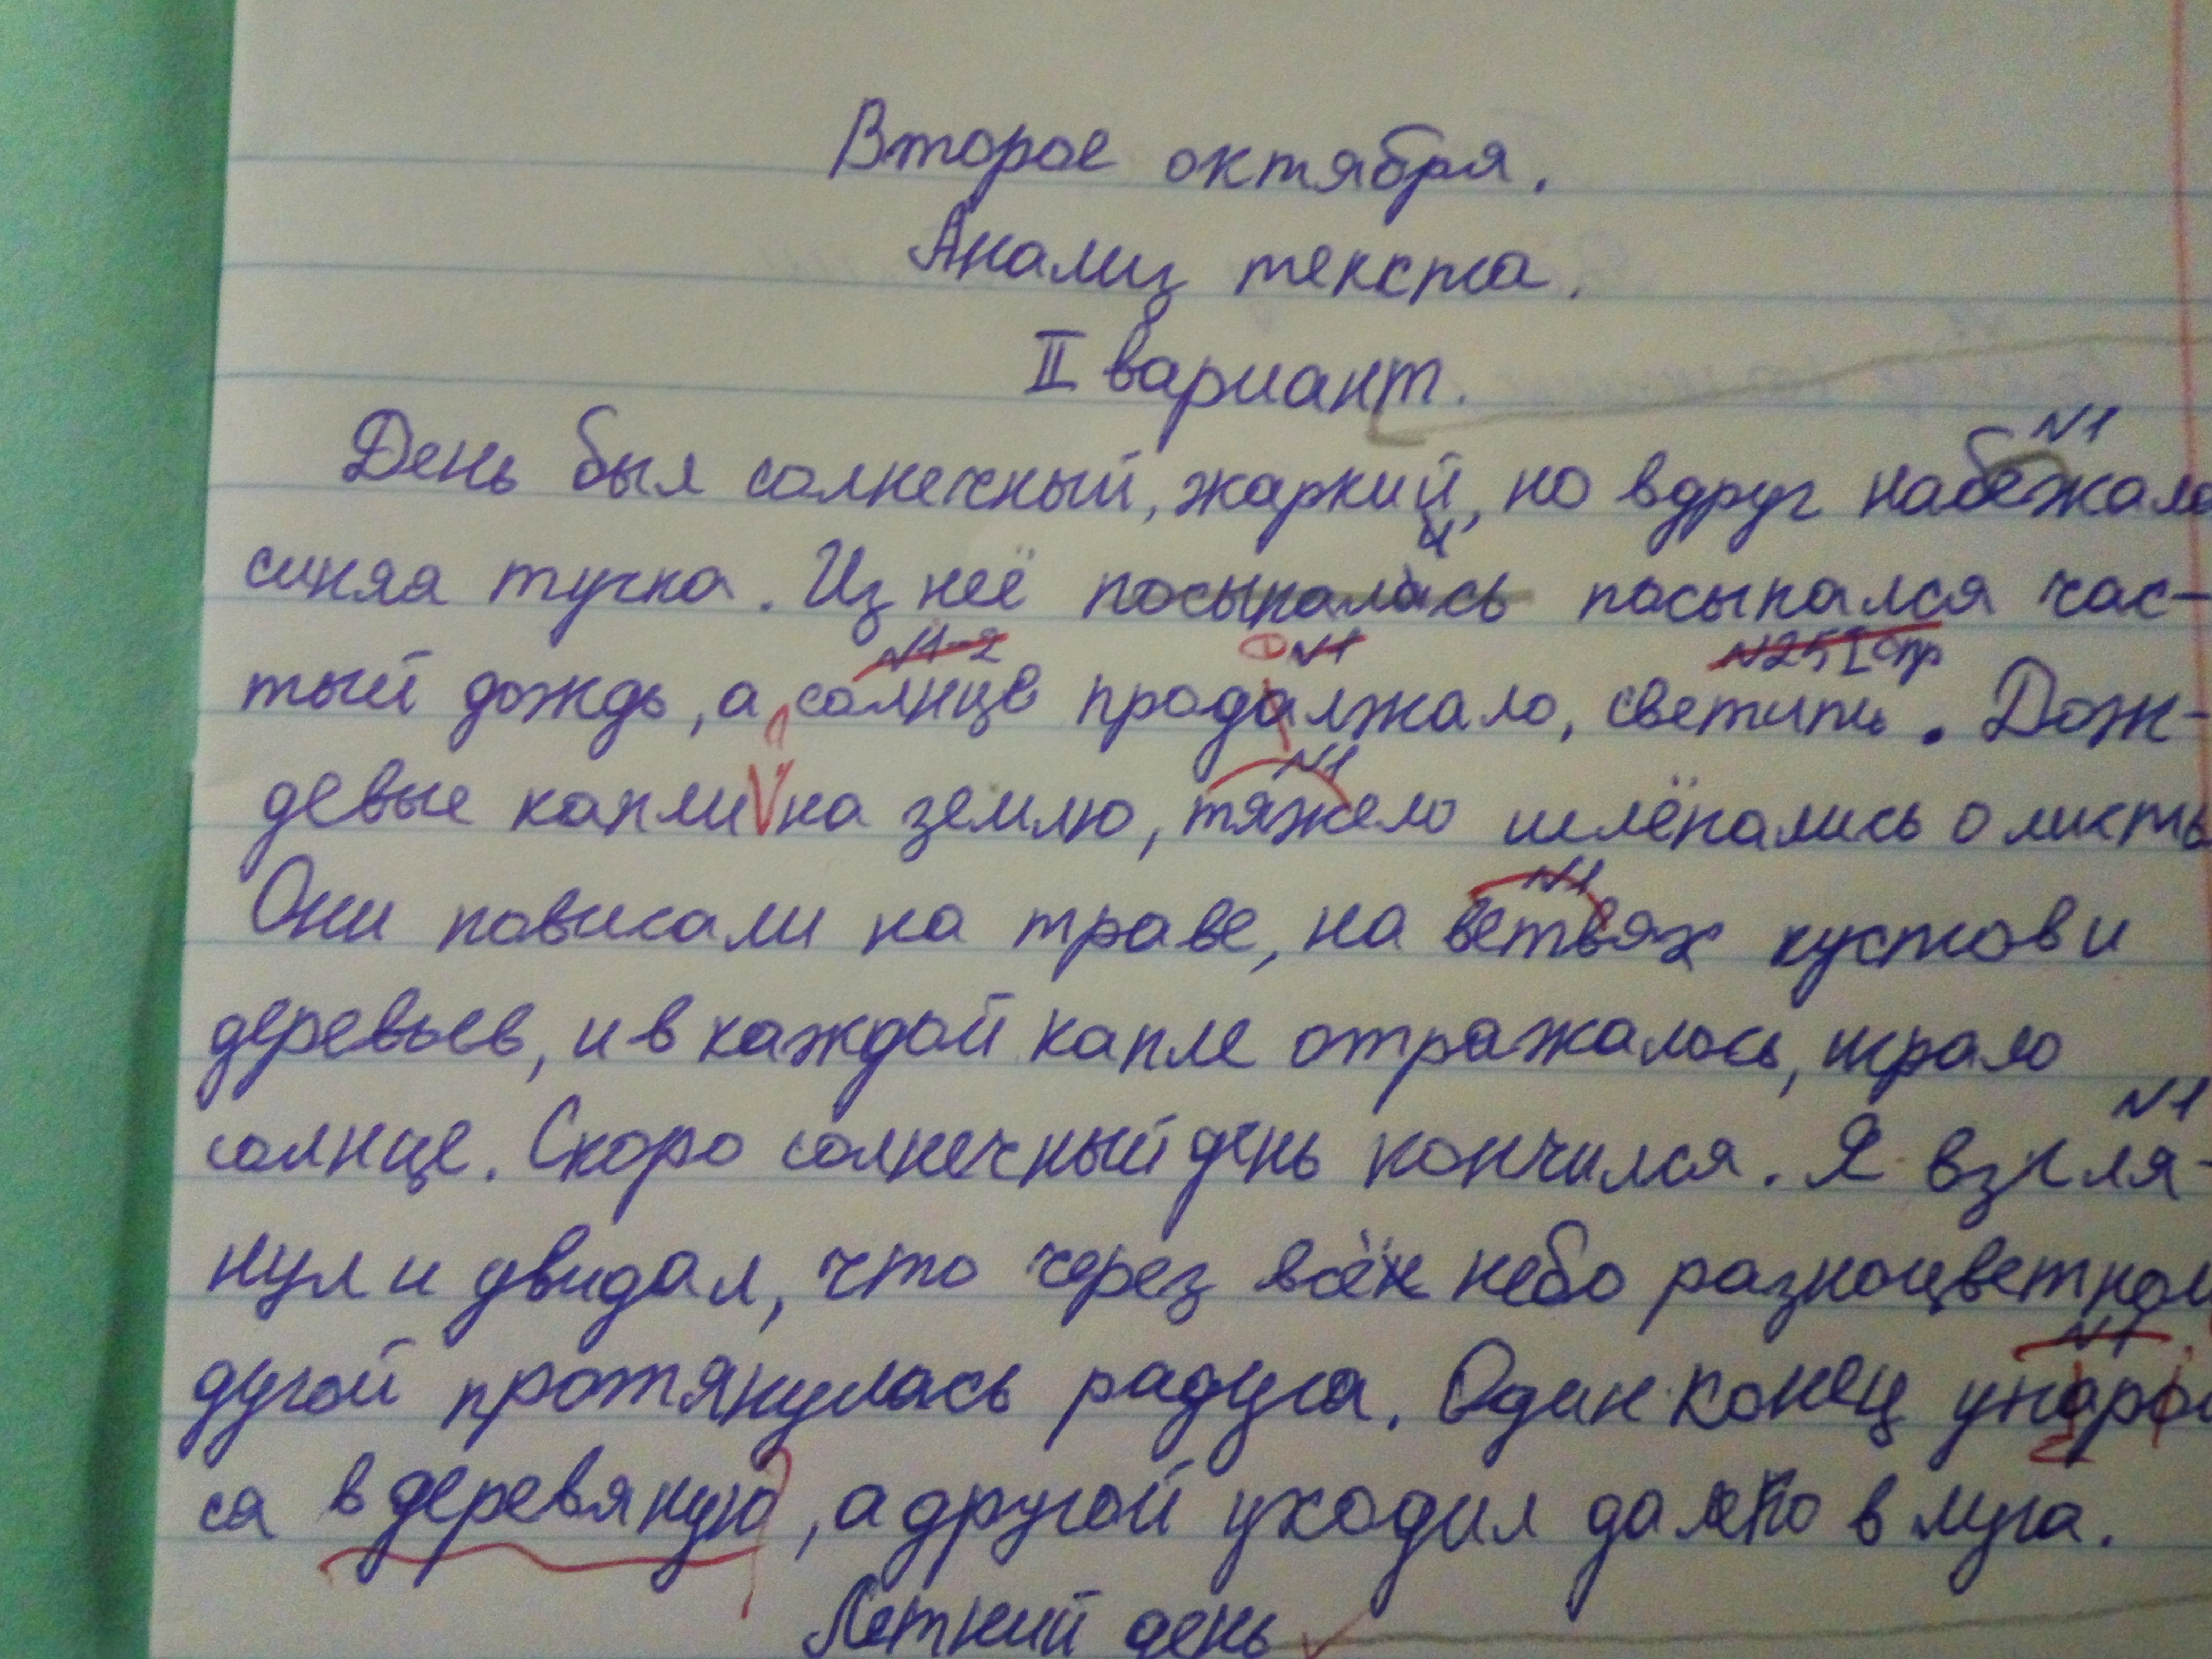 Второе октября.
Анализ текста.
II вариант.
№1
День был солнечный, жаркий, но вдруг набежала
синяя тучка. Из неё посыпалась посыпался час-
№1-2 №1 №25 I спр
тый дождь, а солнце продалжало, светить. Дож-
№1
девые капли на землю, тяжело шлёпались о листь
№1
Они повисали на траве, на ветвях кустов и
деревьев, и в каждой капле отражалось, играло
№1
солнце. Скоро солнечный день кончился. Я взгля-
нул и увидал, что через всё небо разноцветной
№1
дугой протянулась радуга. Один конец
са в деревяную, а другой уходил далеко в луга.
Летний день